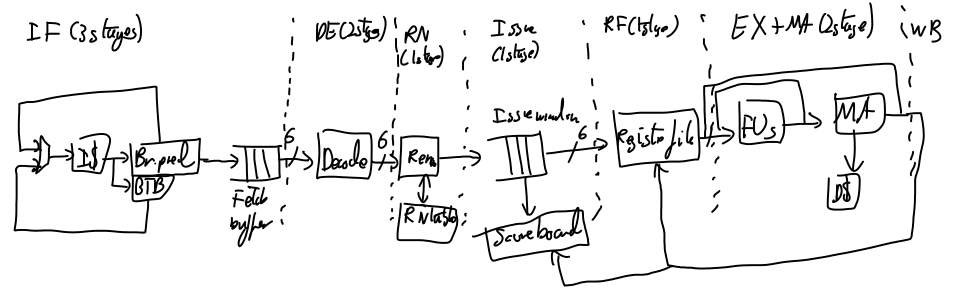 IF (3stages)
DE(2stage)
RN
(1stage)
Issue
(1stage)
RF(1stage)
EX + MA (2stage)
WB
I$
Br.pred
BTB
Fetch
buffer
6
Decode
6
RN table
Issue window
6
Scoreboard
Register file
FUs
MA
D$